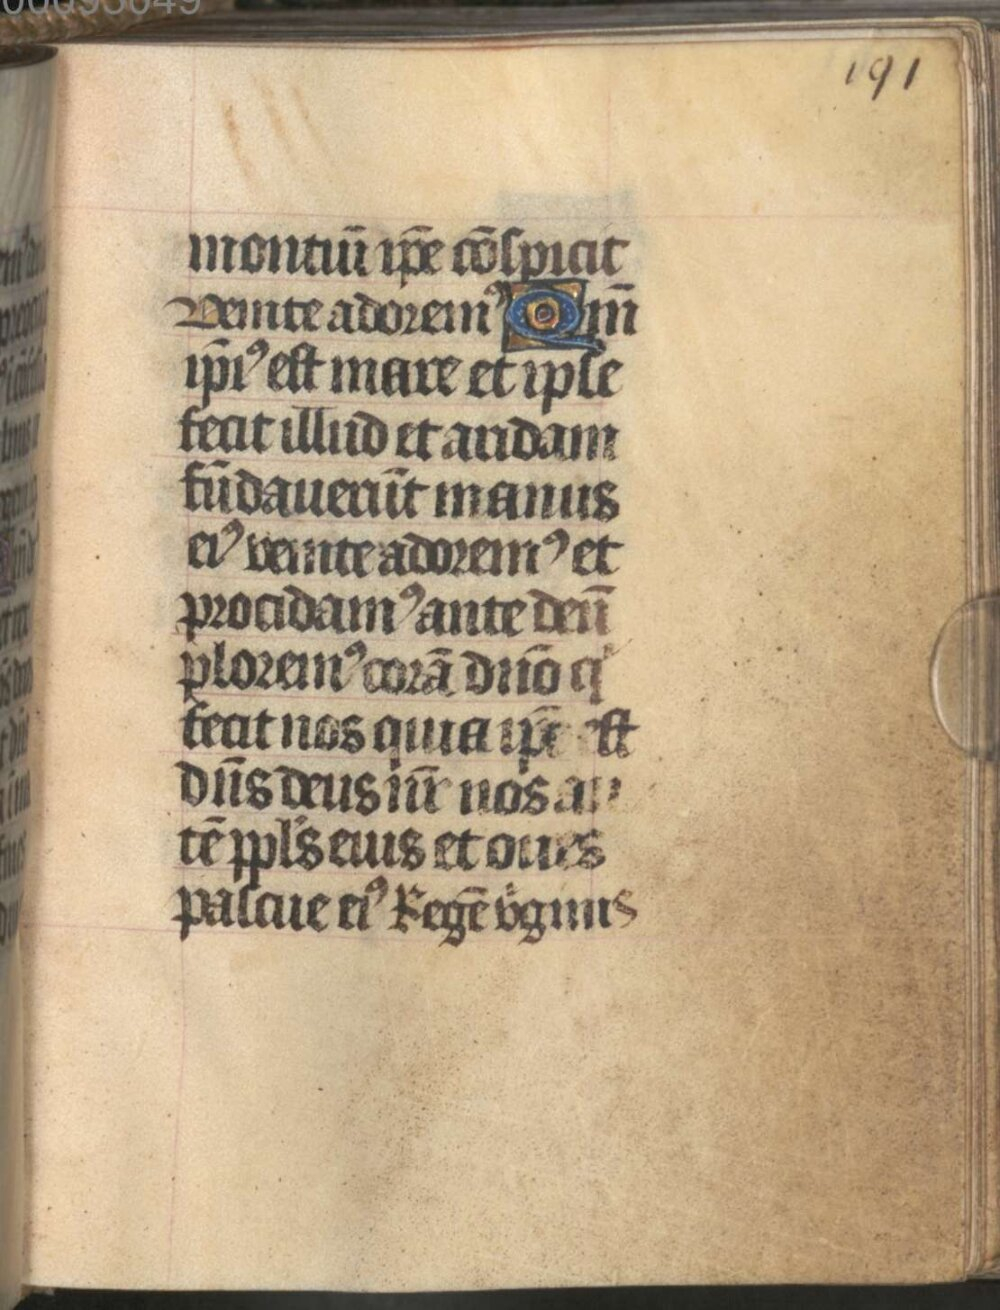 191
montiū ip̄e cōspicit
Venite adoremꝰ Qm̄
ipīꝰ est mare et ipse
fecit illud et aridam
fūdauerūt manus
eiꝰ venite adoremꝰ et
procidamꝰ ante deū
ploremꝰ corā dn̄o qi
fecit nos quia ip̄e est
dn̄s deus nr̄ nos au
tē ppl̄s eius et oues
pascue eiꝰ Regē v̾ginis